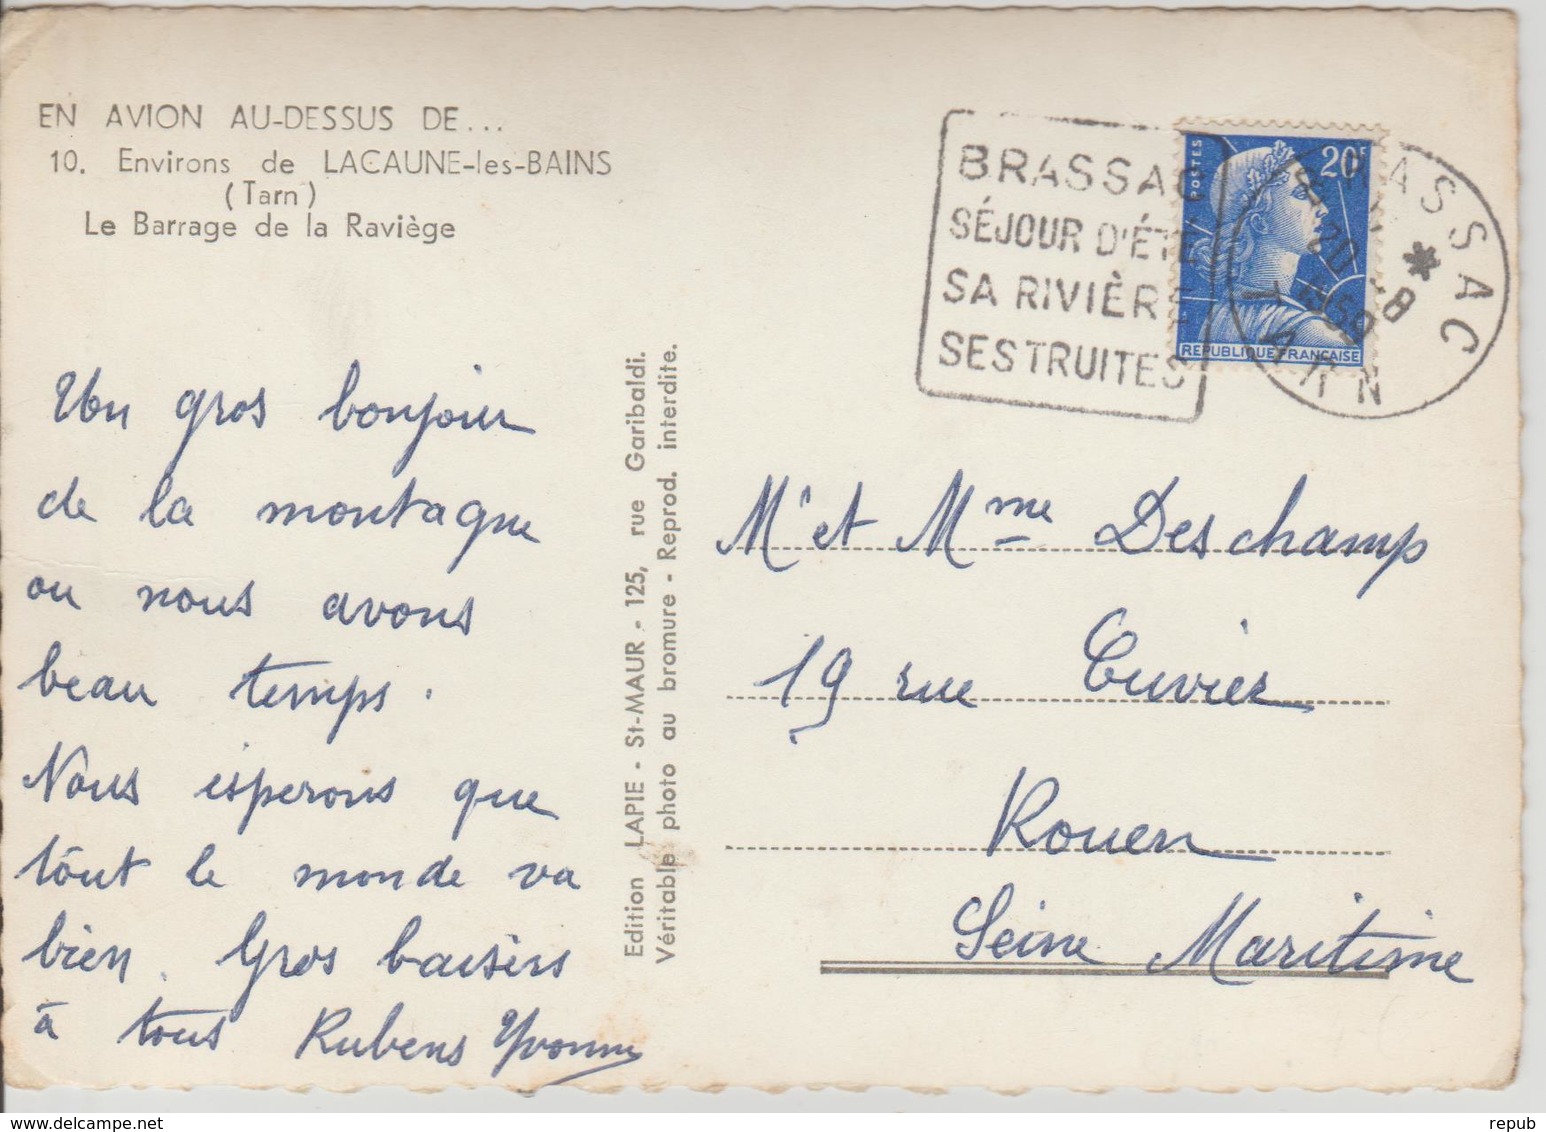 EN AVION AU-DESSUS DE...
10. Environs de LACAUNE-les-BAINS
(Tarn)
Le Barrage de la Raviège
BRASSAC
SÉJOUR D'ÉTÉ
SA RIVIÈRE
SES TRUITES
POSTES
20F
REPUBLIQUE FRANÇAISE
BRASSAC
TARN
Un gros bonjour
de la montagne
ou nous avons
beau temps.
Nous esperons que
tout le monde va
bien. Gros baisers
à tous Rubens Yvonne
Edition LAPIE - St-MAUR - 125, rue Garibaldi.
Véritable photo au bromure - Reprod. interdite.
Mr et Mme Deschamp
19 rue Cuvier
Rouen
Seine Maritime
www.delcampe.net
repub